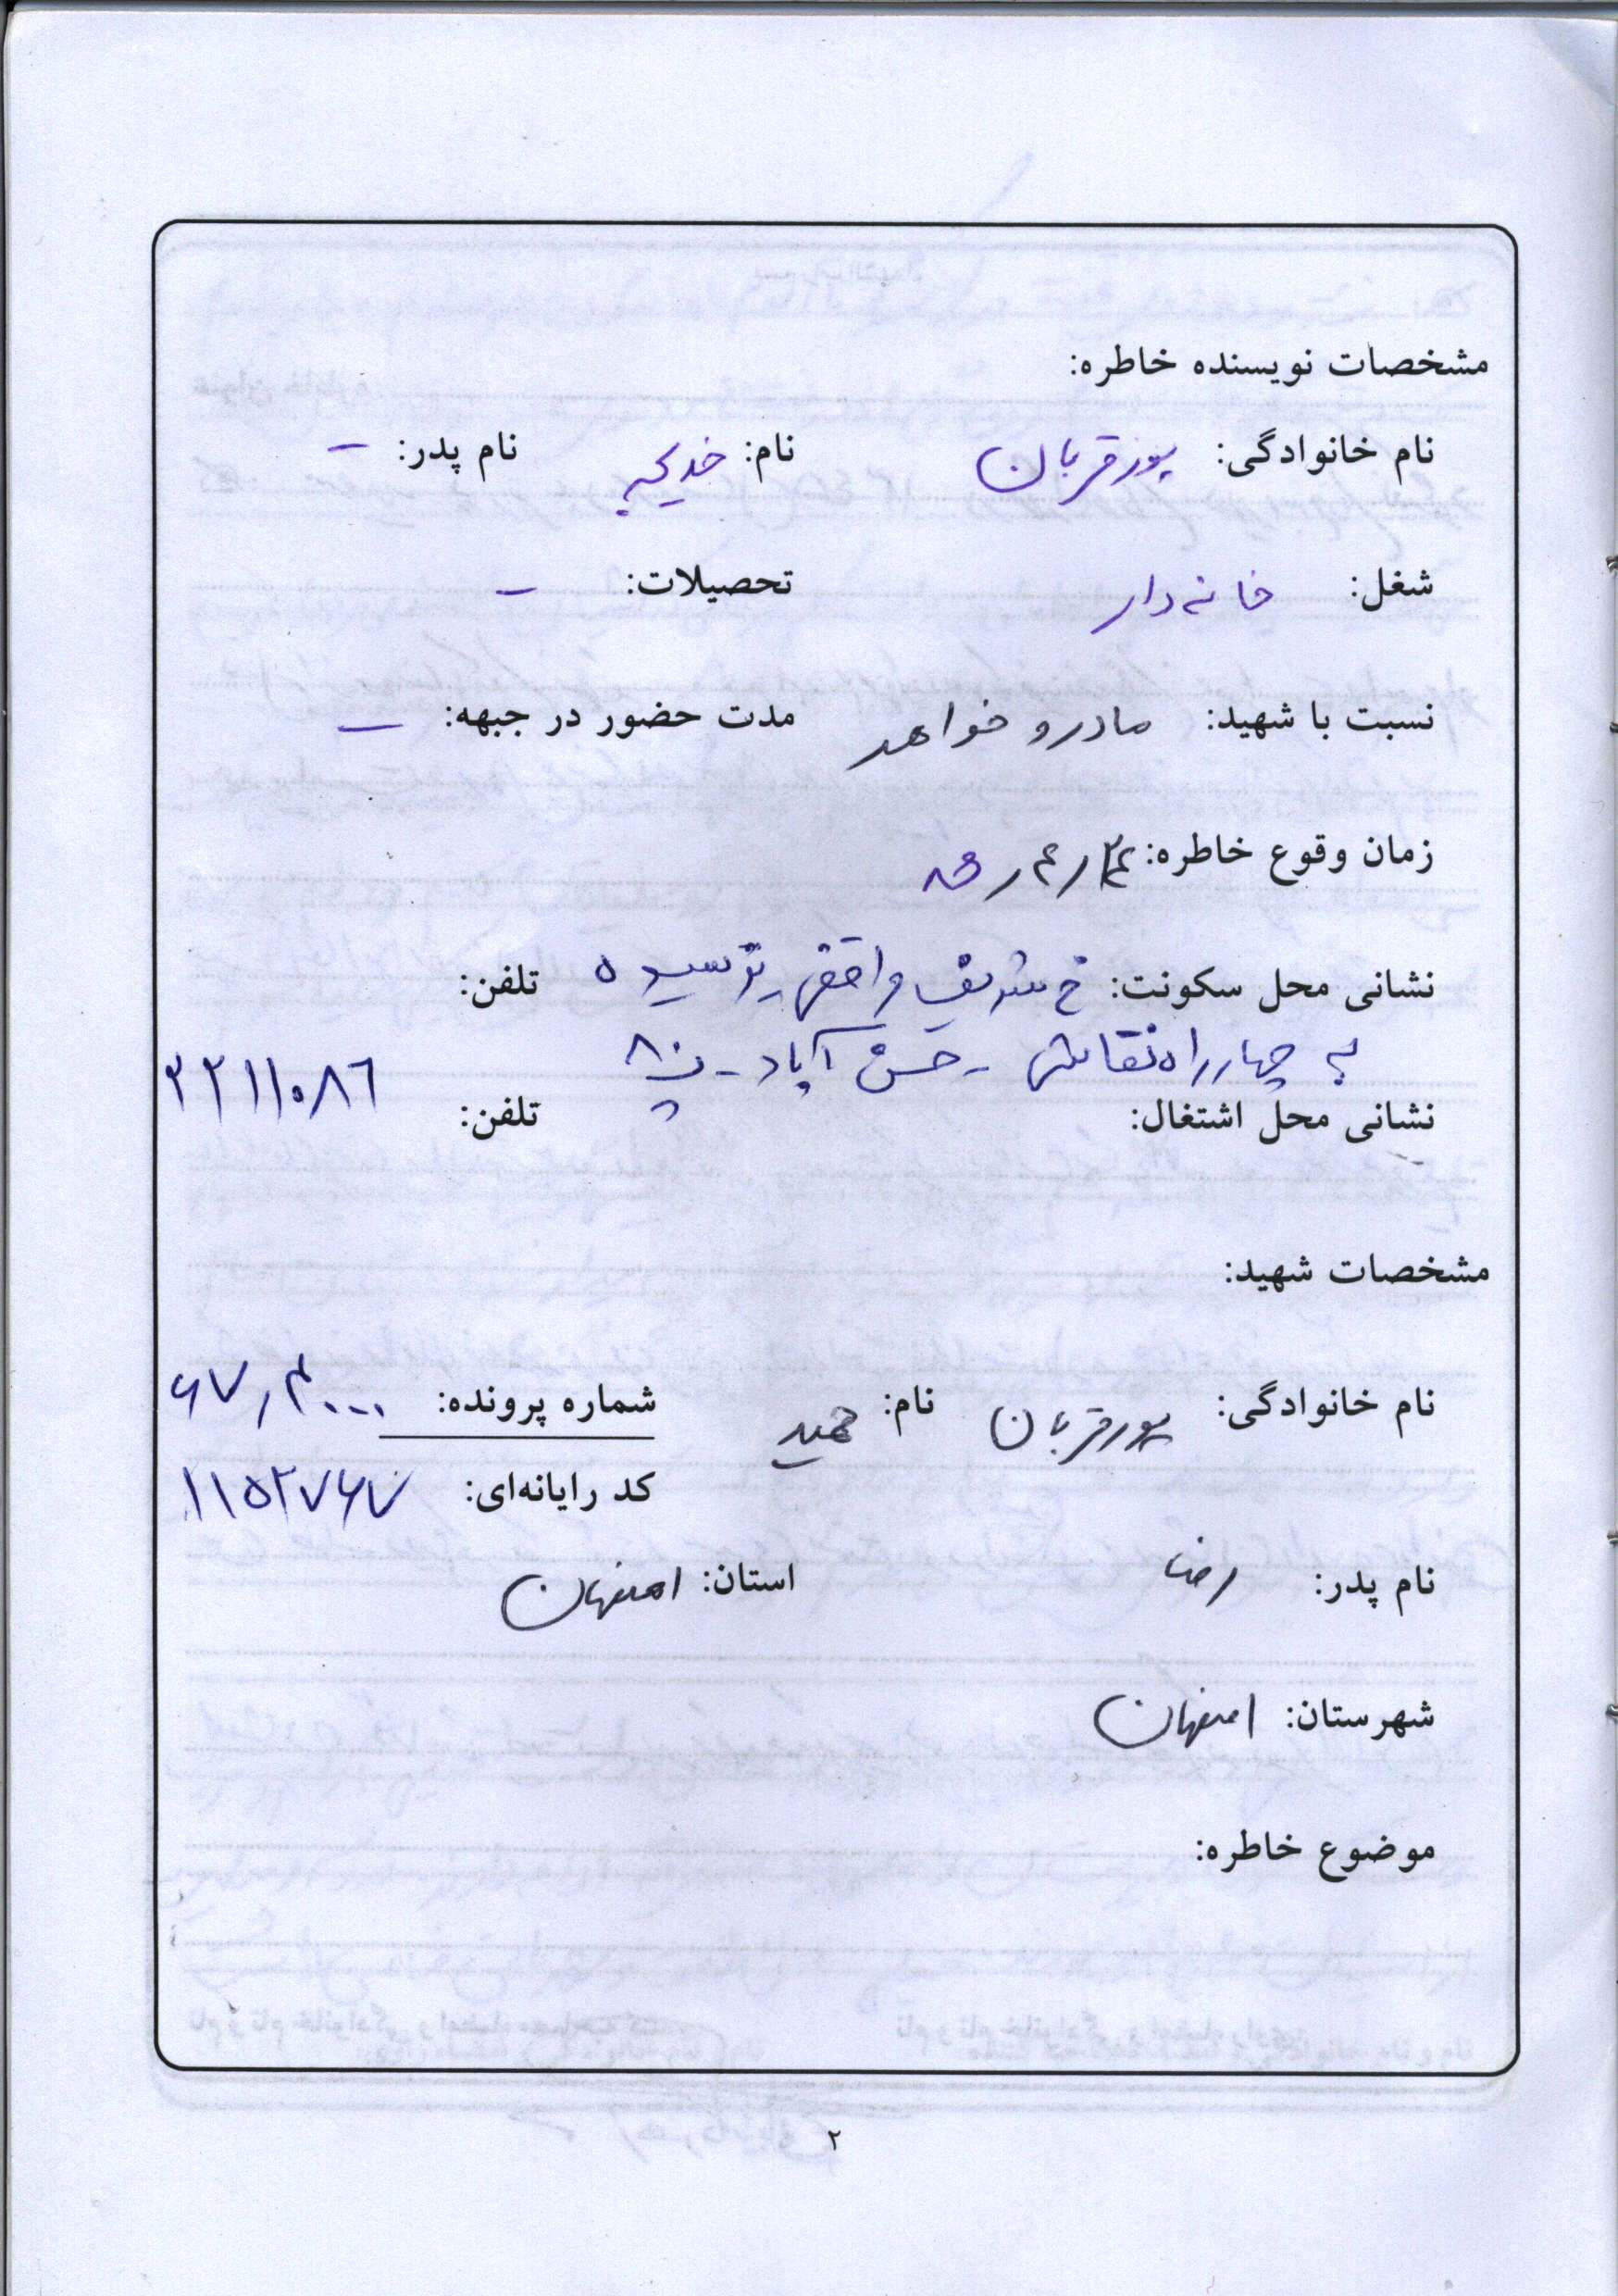 مشخصات نویسنده خاطره:
نام خانوادگی: پورقربان نام: خدیجه نام پدر: –
شغل: خانه‌دار تحصیلات: –
نسبت با شهید: مادر و خواهر مدت حضور در جبهه: –
زمان وقوع خاطره:
نشانی محل سکونت: خ شریف واقفی نرسیده تلفن:
به چهارراه نقاشی - حسن آباد - پ ۸ ۲۲۱۱۰۸۶
نشانی محل اشتغال: تلفن:
مشخصات شهید:
نام خانوادگی: پورقربان نام: حمید شماره پرونده: ۶۷٫۳۰۰۰
کد رایانه‌ای: ۱۱۵۲۷۶۷
نام پدر: رضا استان: اصفهان
شهرستان: اصفهان
موضوع خاطره:
۲